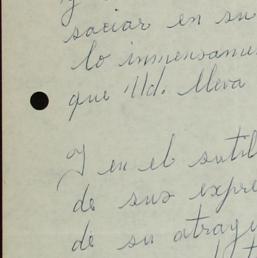 y
saciar en su
lo inmensame
que Ud. lleva
Y en el sutil
de sus expre
de su atrayen